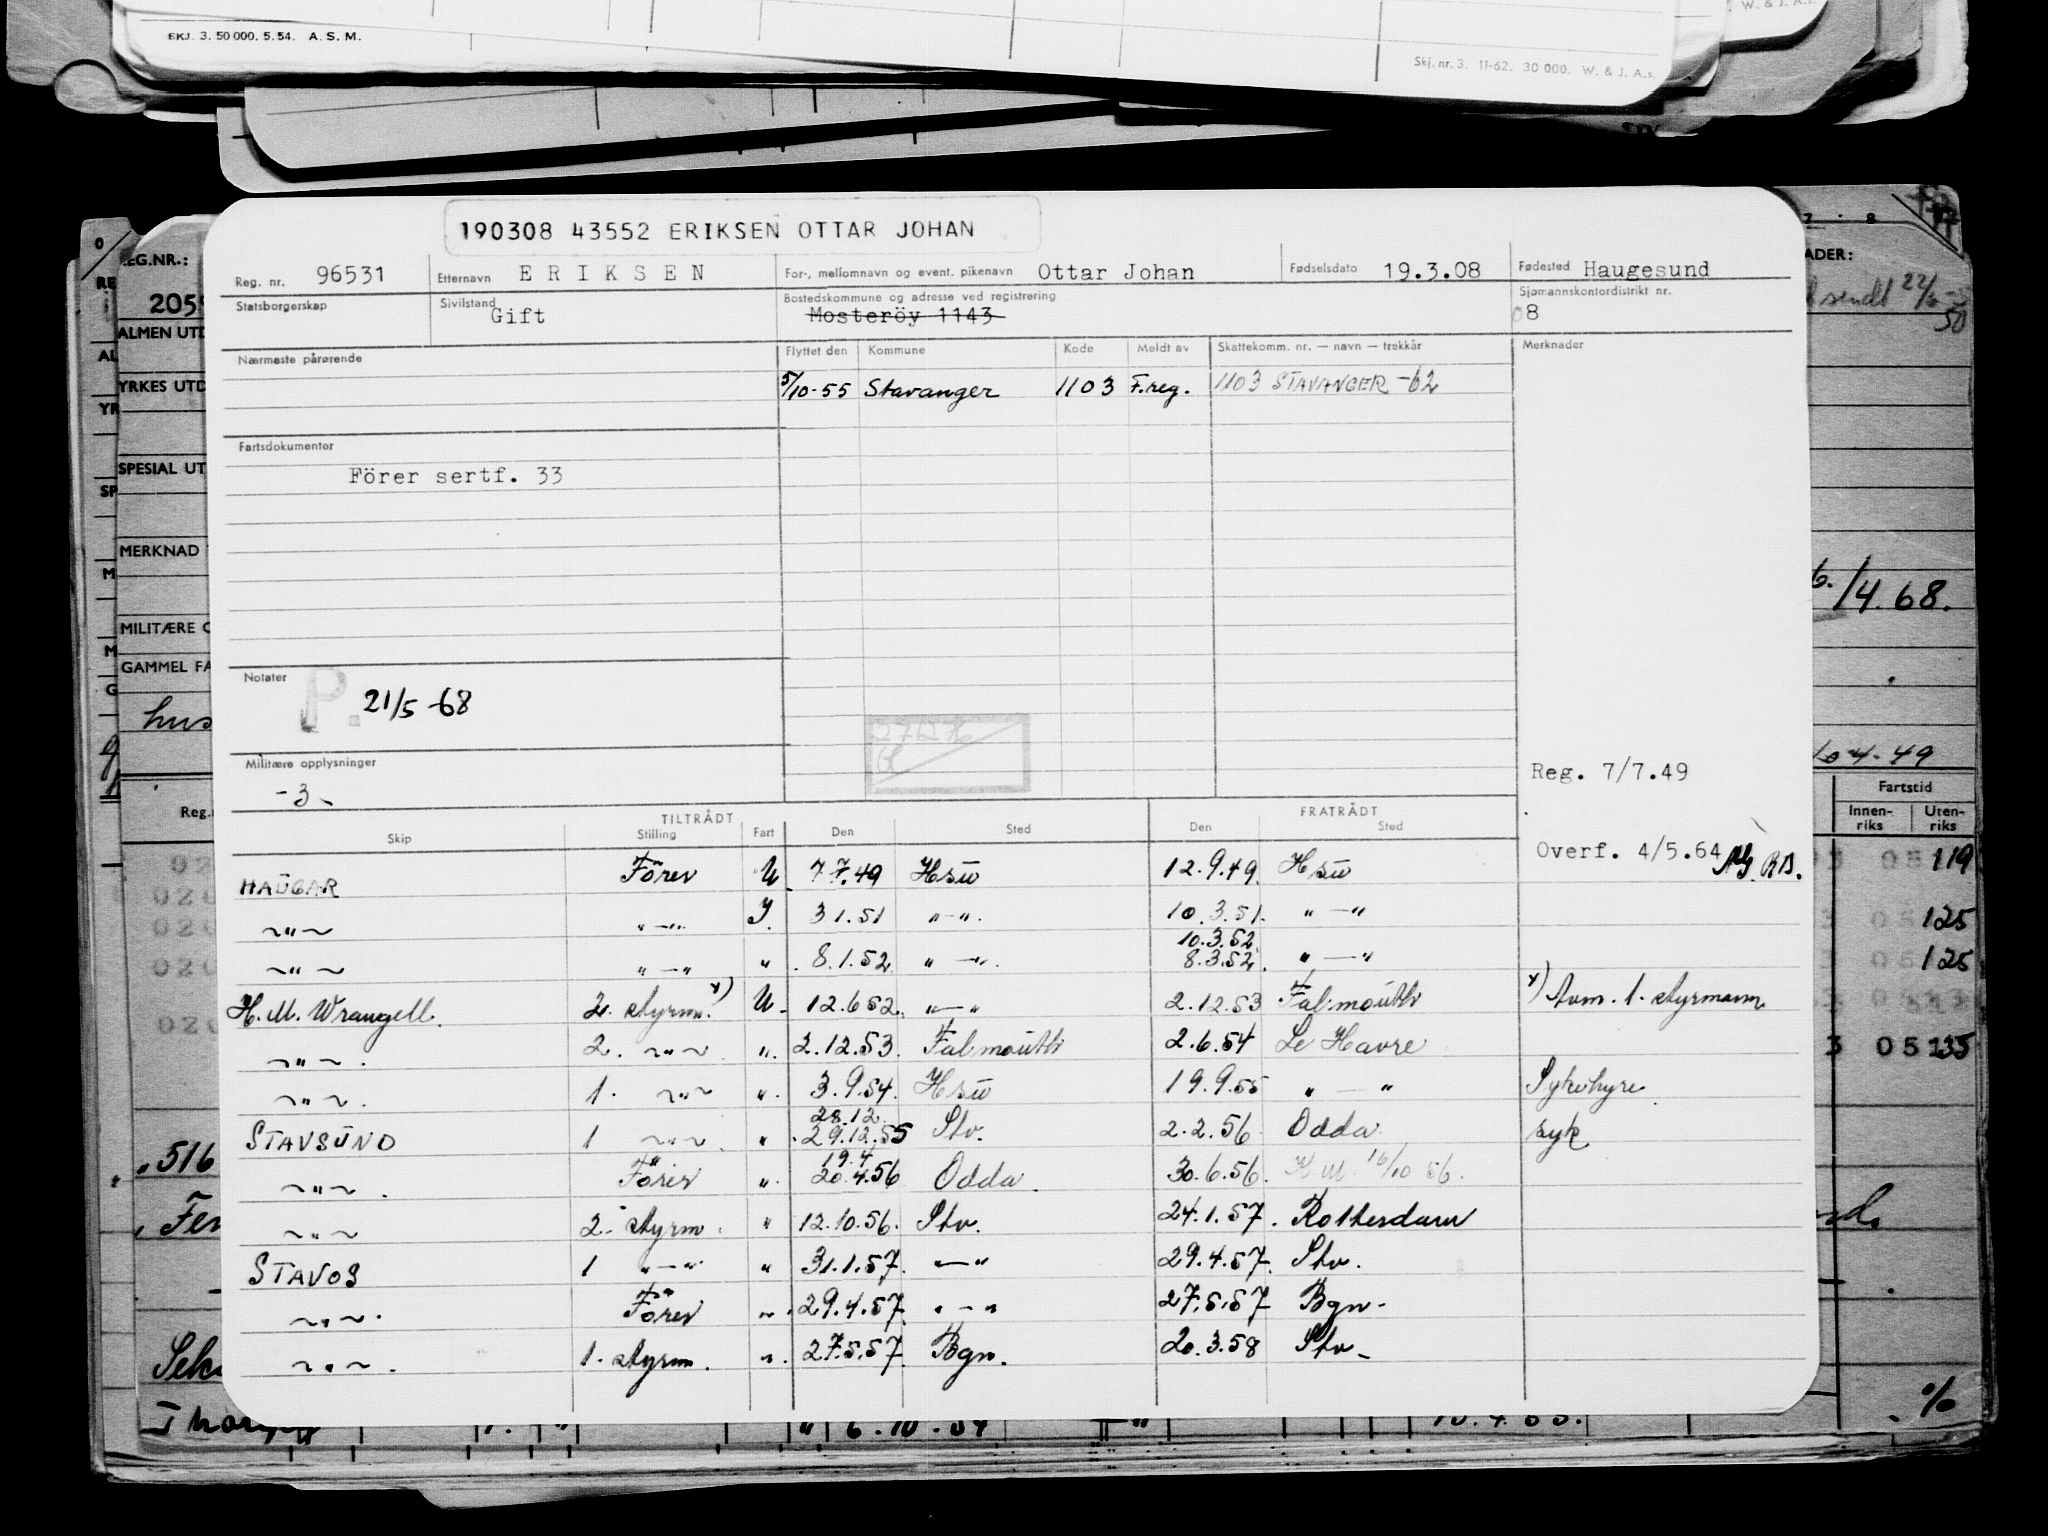 EKJ. 3. 50 000. 5. 54. A. S. M.
W. & J. A.s.
Skj. nr. 3. 11-62. 30 000. W. & J. A.s.
190308 43552 ERIKSEN OTTAR JOHAN
Reg. nr. 96531 Etternavn ERIKSEN For-, mellomnavn og event. pikenavn Ottar Johan Fødselsdato 19.3.08 Fødested Haugesund
Statsborgerskap Sivilstand Gift Bostedskommune og adresse ved registrering Mosteröy 1143 Sjømannskontordistrikt nr. 08
Nærmeste pårørende Flyttet den Kommune Kode Meldt av Skattekomm. nr. — navn — trekkår Merknader
5/10-55 Stavanger 1103 F.reg. 1103 STAVANGER -62
Fartsdokumenter
Förer sertf. 33
Notater
P. 21/5 -68
Militære opplysninger
-3-
Reg. 7/7.49
Overf. 4/5.64
TILTRÅDT FRATRÅDT
Skip Stilling Fart Den Sted Den Sted
HAUGAR Förer U. 7.7.49 Hsu 12.9.49. Hsu
~"~ "—" I. 3 1.51 "—". 10.3.51. "—"
10.3.52.
~"~ "—" " 8.1.52 "—". 8.3.52. "—"
H. M. Wrangell. 2. styrm. x) U. 12.6 52. "—" 2.12.53 Falmouth x) Avm. 1. styrmann
~"~. 2. ~"~ ". 2.12.53. Falmouth 2.6.54 Le Havre
~"~. 1. ~"~ ". 3.9.54. Hsu 19.9.55 "—" Sykehyre
28.12.
STAVSUND 1 ~"~ ". 29.12.55 Stv. 2.2.56. Odda syk
19.4
~"~. Förer ". 20.4.56 Odda. 30.6.56. K M. 16/10 56.
~"~ 2. styrm. " 12.10.56. Stv. 24.1.57. Rotterdam
STAVOS 1 "—" " 31.1.57. "—" 29.4.57. Stv.
~"~. Förer ". 29.4.57. "—" 27.5.57 Bgn.
~"~. 1. styrm. ". 27.5.57. Bgn. 20.3.58 Stv.
REG.NR.:
2055
ALMEN UTD
YRKES UTD
SPESIAL UT
MERKNAD
MILITÆRE
GAMMEL FA
Reg.
7 8
ADER:
sendt 22/
50
/4.68.
10-4-49
Fartstid
Innen-riks Uten-riks
05 119
05 125
05 125
3 05 135
.516
I 6.10.54
%